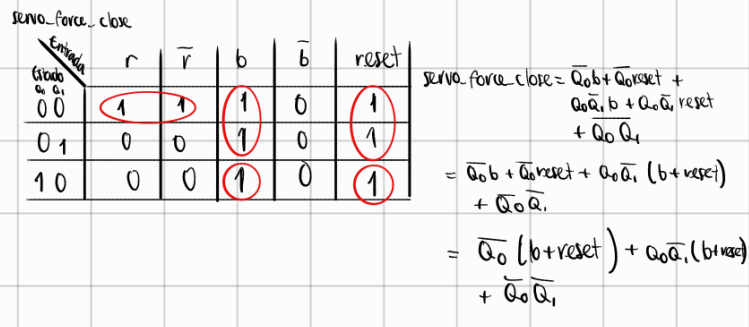 servo_force_close
Entrada r r̅ b b̅ reset
Estado
Q₀ Q₁
0 0 1 1 1 0 1
0 1 0 0 1 0 1
1 0 0 0 1 0 1
servo_force_close = Q̅₀b + Q̅₀reset +
Q₀Q̅₁b + Q₀Q̅₁ reset
+ Q̅₀Q̅₁
= Q̅₀b + Q̅₀reset + Q₀Q̅₁ (b+reset)
+ Q̅₀Q̅₁
= Q̅₀ (b+reset) + Q₀Q̅₁(b+reset)
+ Q̅₀Q̅₁